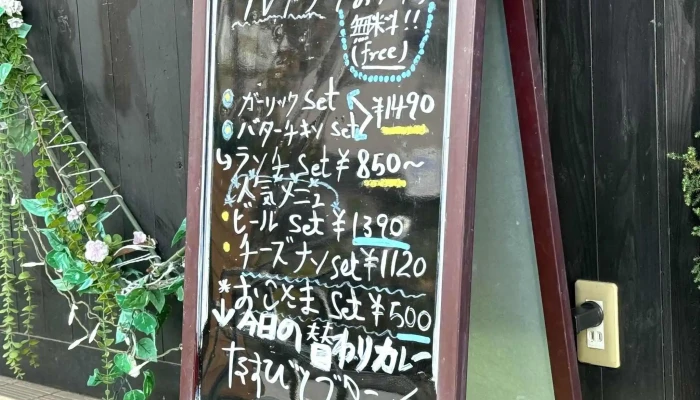 無料!!
(free)
ガーリック set
バターチキン set
¥1490
ランチ set ¥ 850～
人気メニュ
ビール set ¥1390
チーズナン set ¥1120
*おこさま set ¥500
↓今日の日替わりカレー